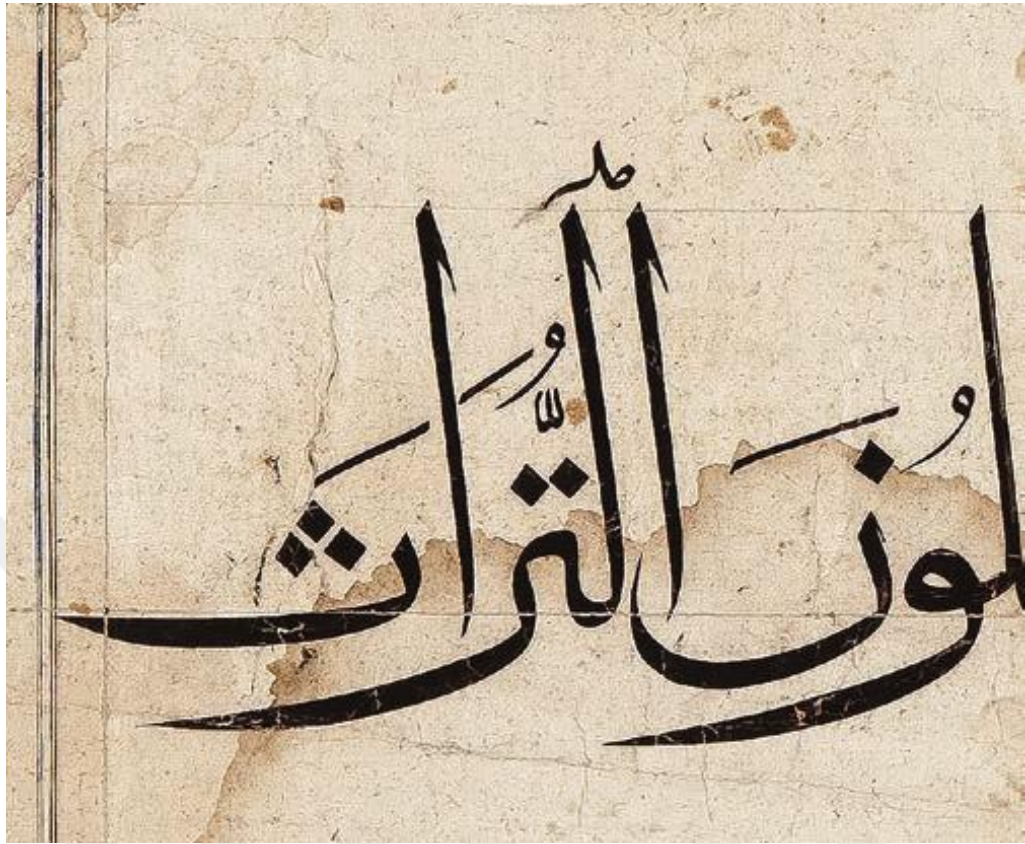 لُونَ ٱلتُّرَاثَ